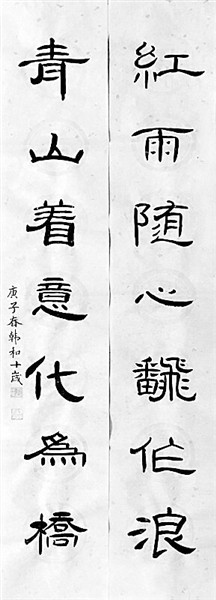 紅雨随心飜作浪
青山着意化為橋
庚子春韩和十歲